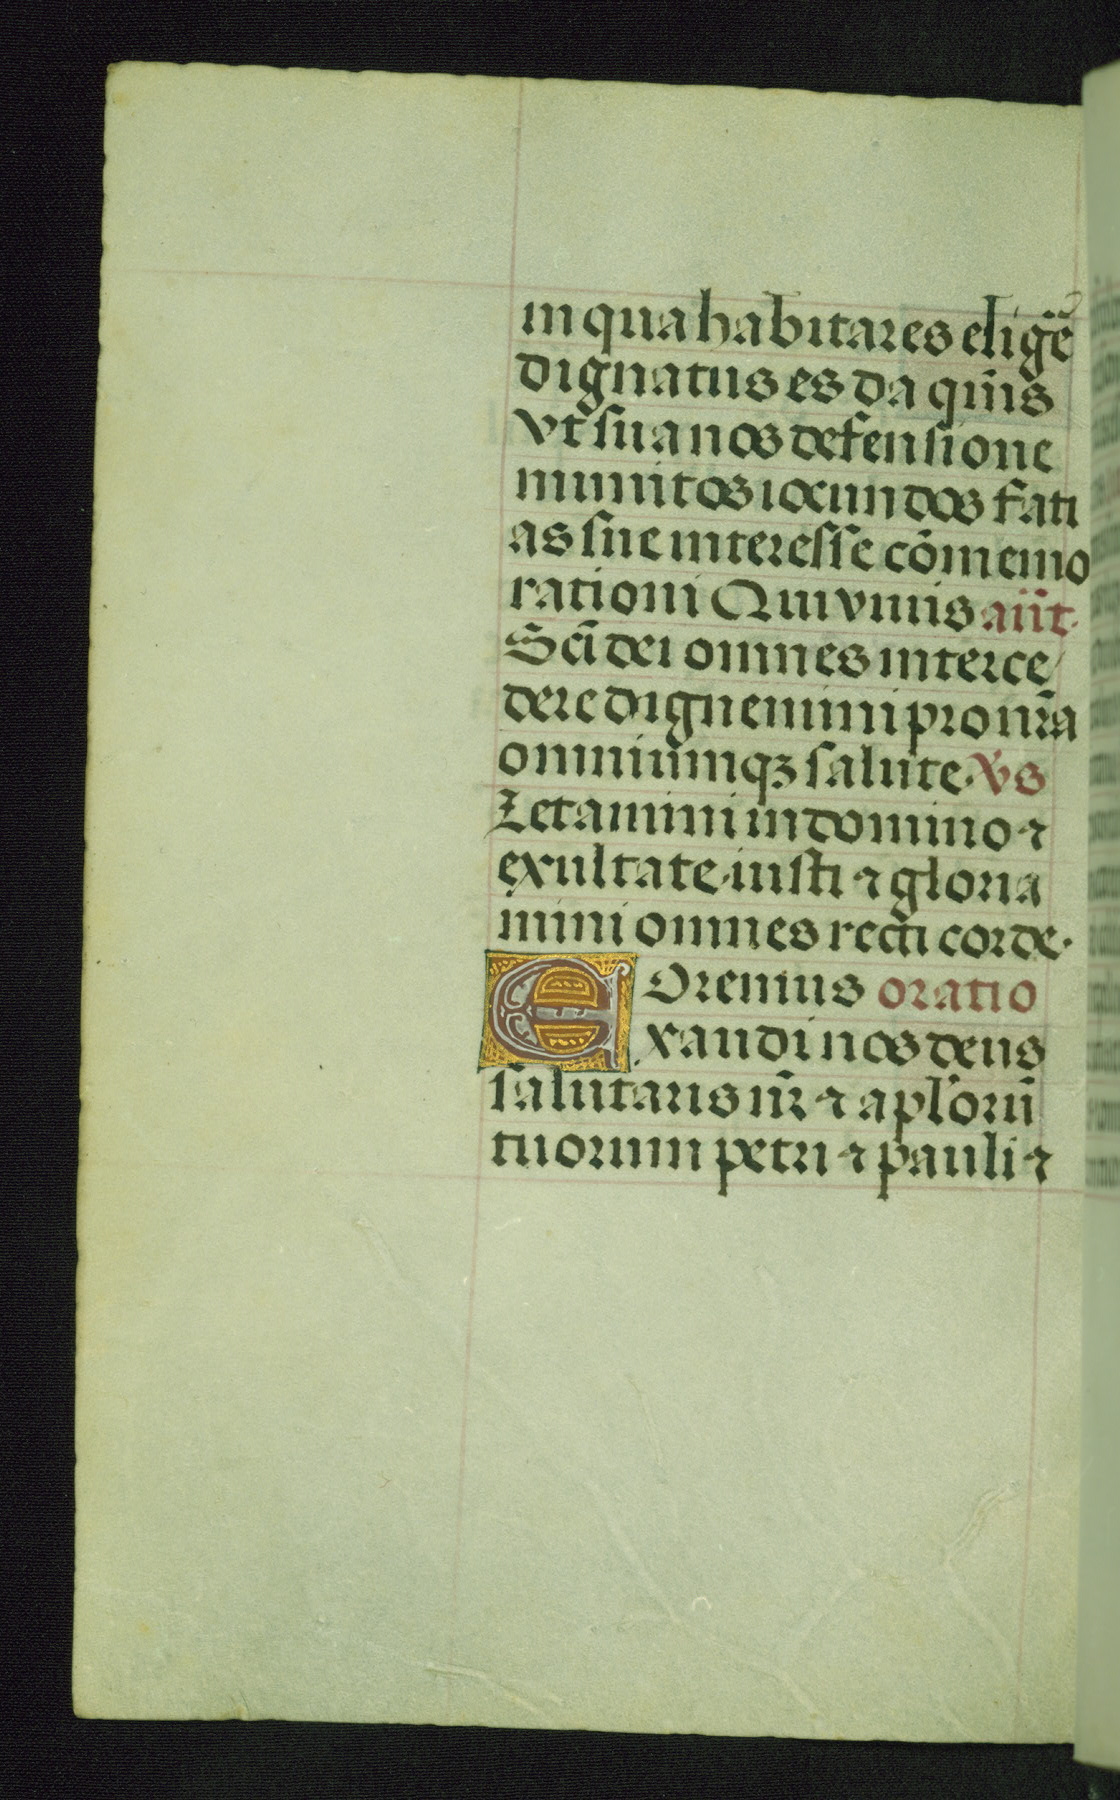 in qua habitares eligē
dignatus es da qm̄s
vt sua nos defensione
munitos iocundos fati
as sue interesse cōmemo
rationi Qui viuis añt.
Scī dei omnes interce
dere dignemini pro nr̄a
omniumqꝫ salute. v̓s
Letamini in domino ⁊
exultate iusti ⁊ gloria
mini omnes recti corde.
Oremus oratio
Exaudi nos deus
salutaris nr̄ ⁊ apl'orū
tuorum petri ⁊ pauli ⁊